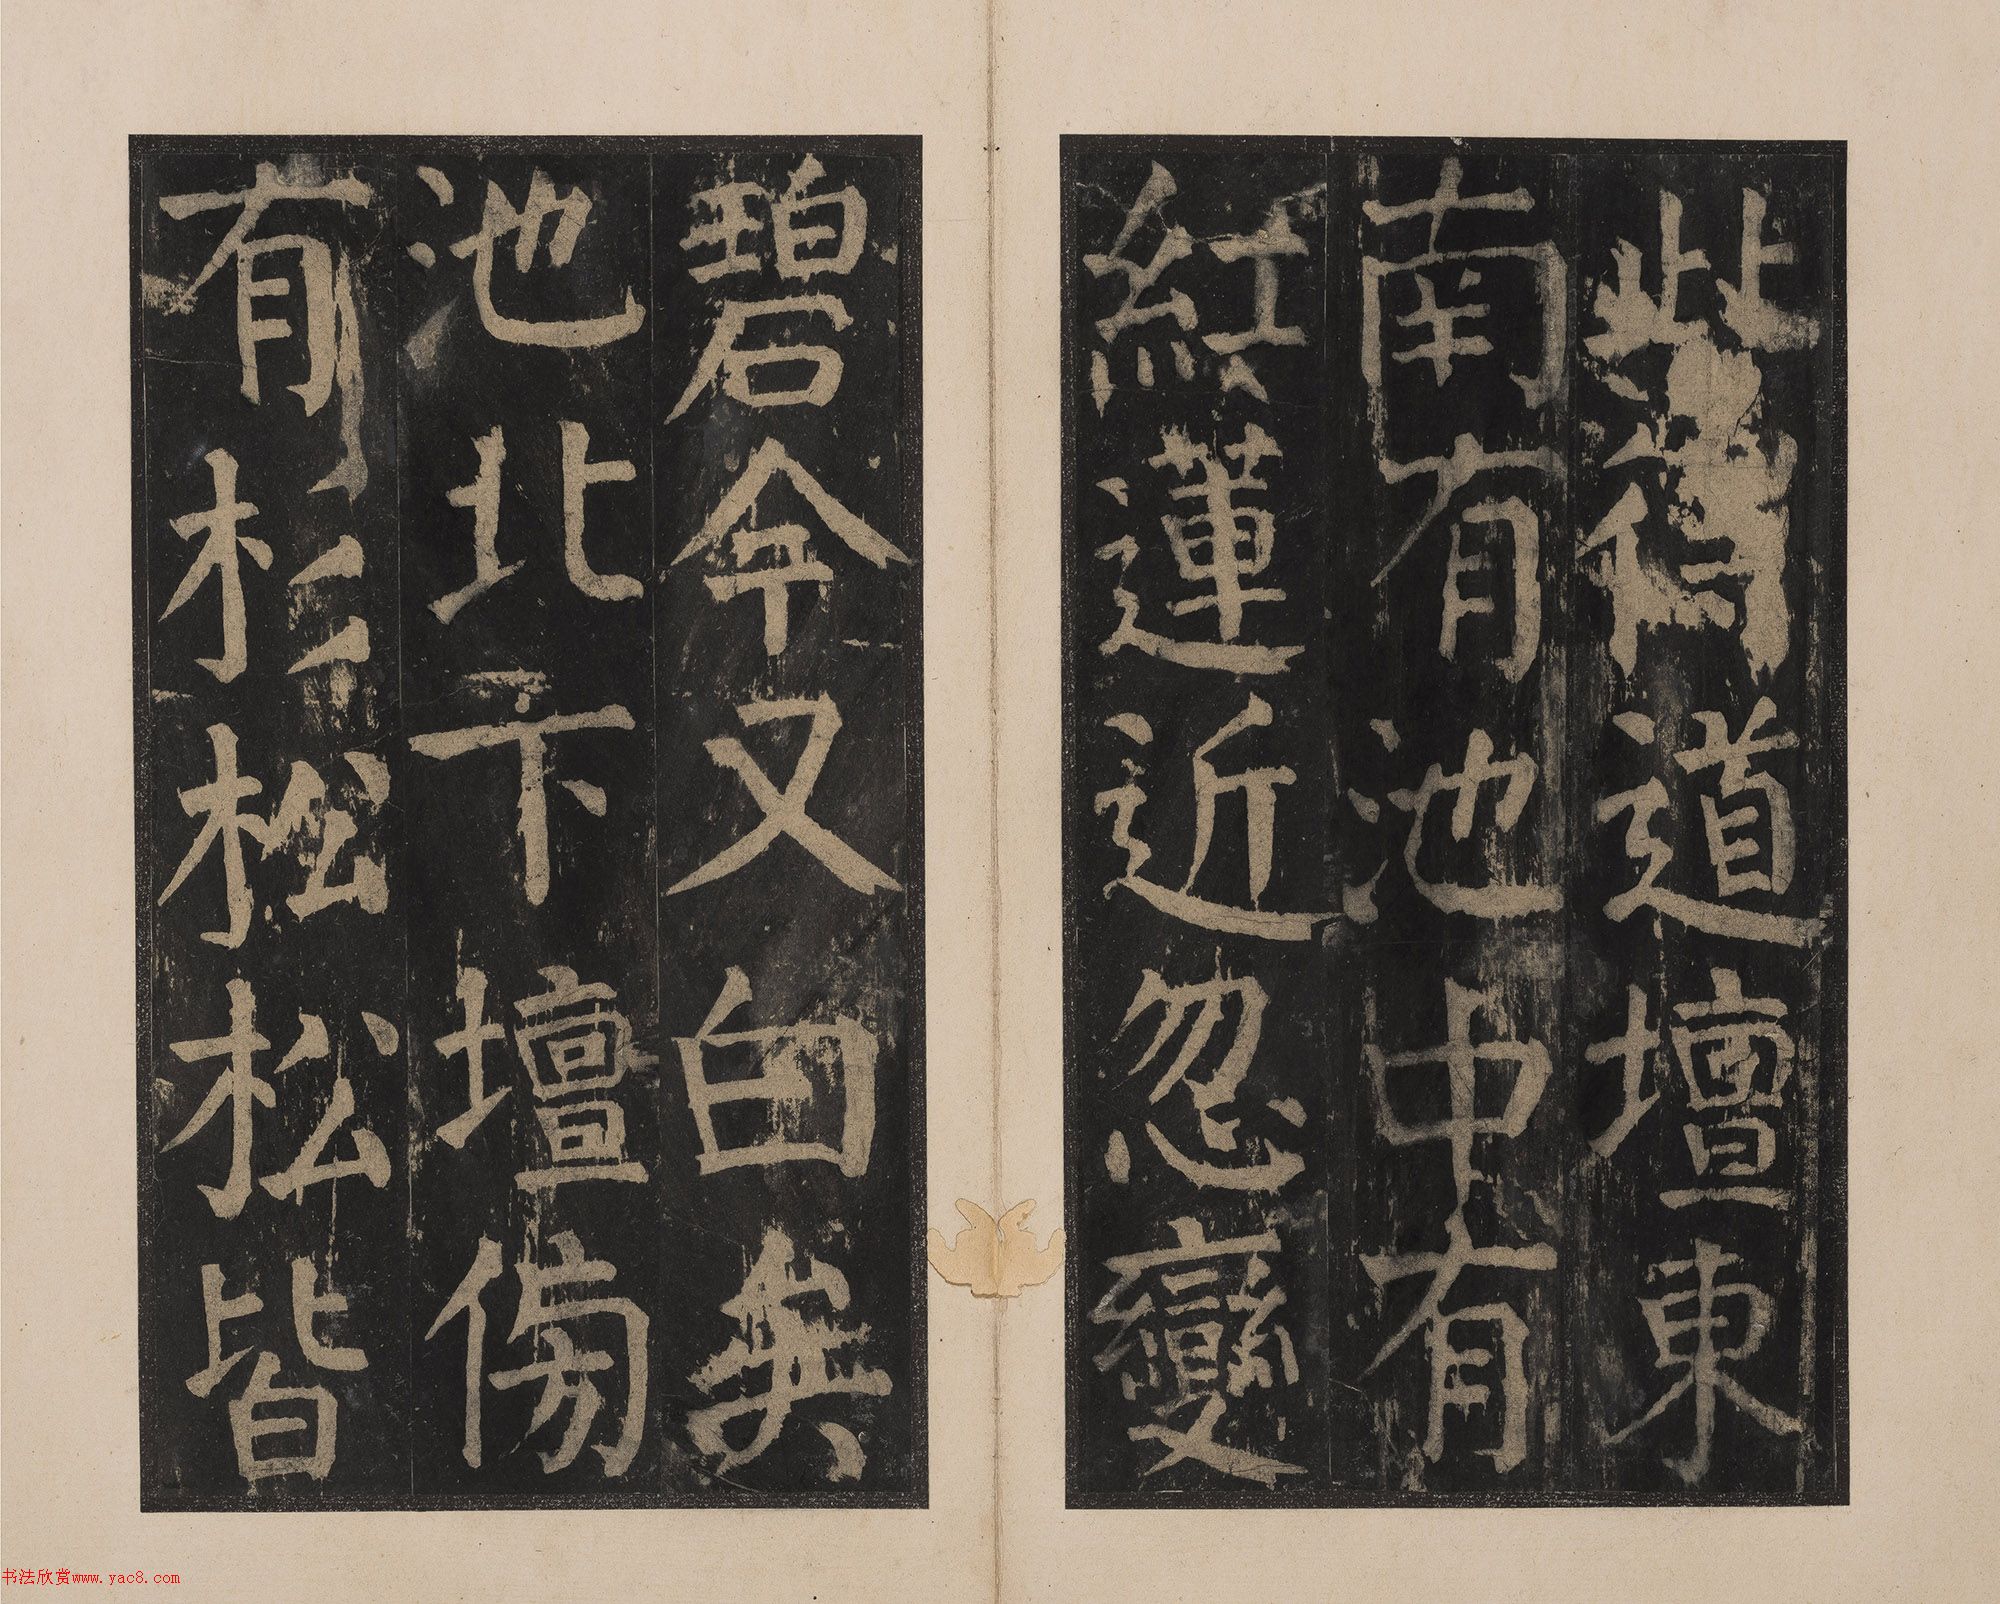 此得道壇東
南有池中有
紅蓮近忽變
碧今又白矣
池北下壇傍
有杉松松皆
书法欣赏www.yac8.com